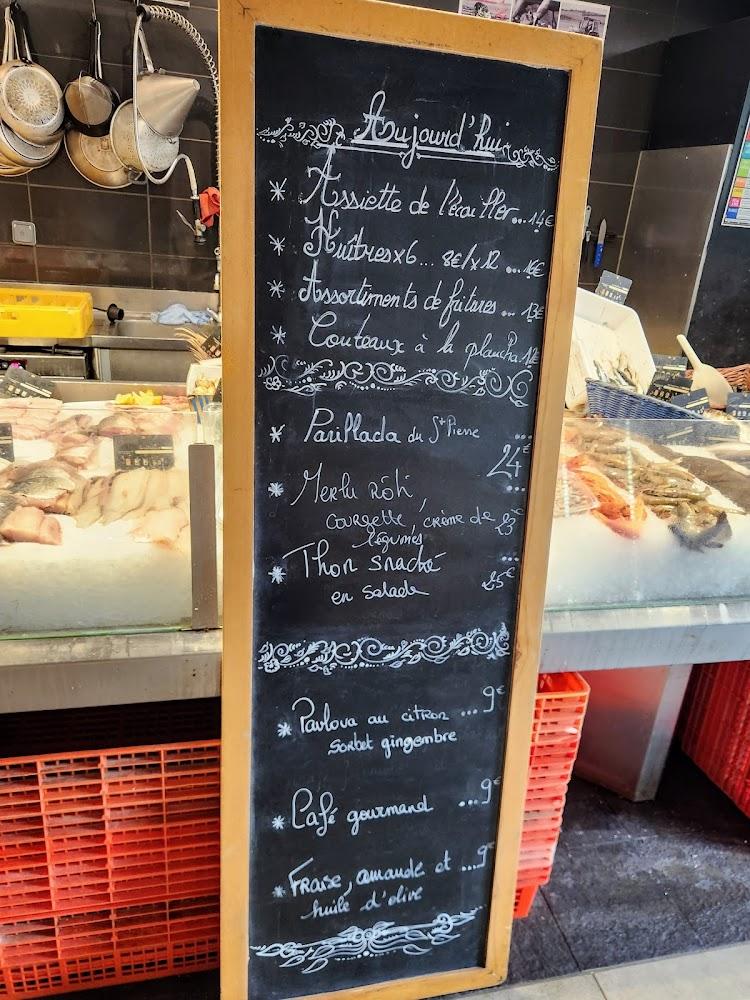 Aujourd'hui
* Assiette de l'écailler...14€
* Huîtres x6... 8€/x12 ...16€
* Assortiments de fritures ... 13€
* Couteaux à la plancha 12€
* Parillada du St Pierre ...
24€
* Merlu rôti, ...
courgette, crème de 23€
légumes
* Thon snacké ...
en salade 25€
* Pavlova au citron ... 9€
sorbet gingembre
* Café gourmand ...9€
* Fraise, amande et ...9€
huile d'olive